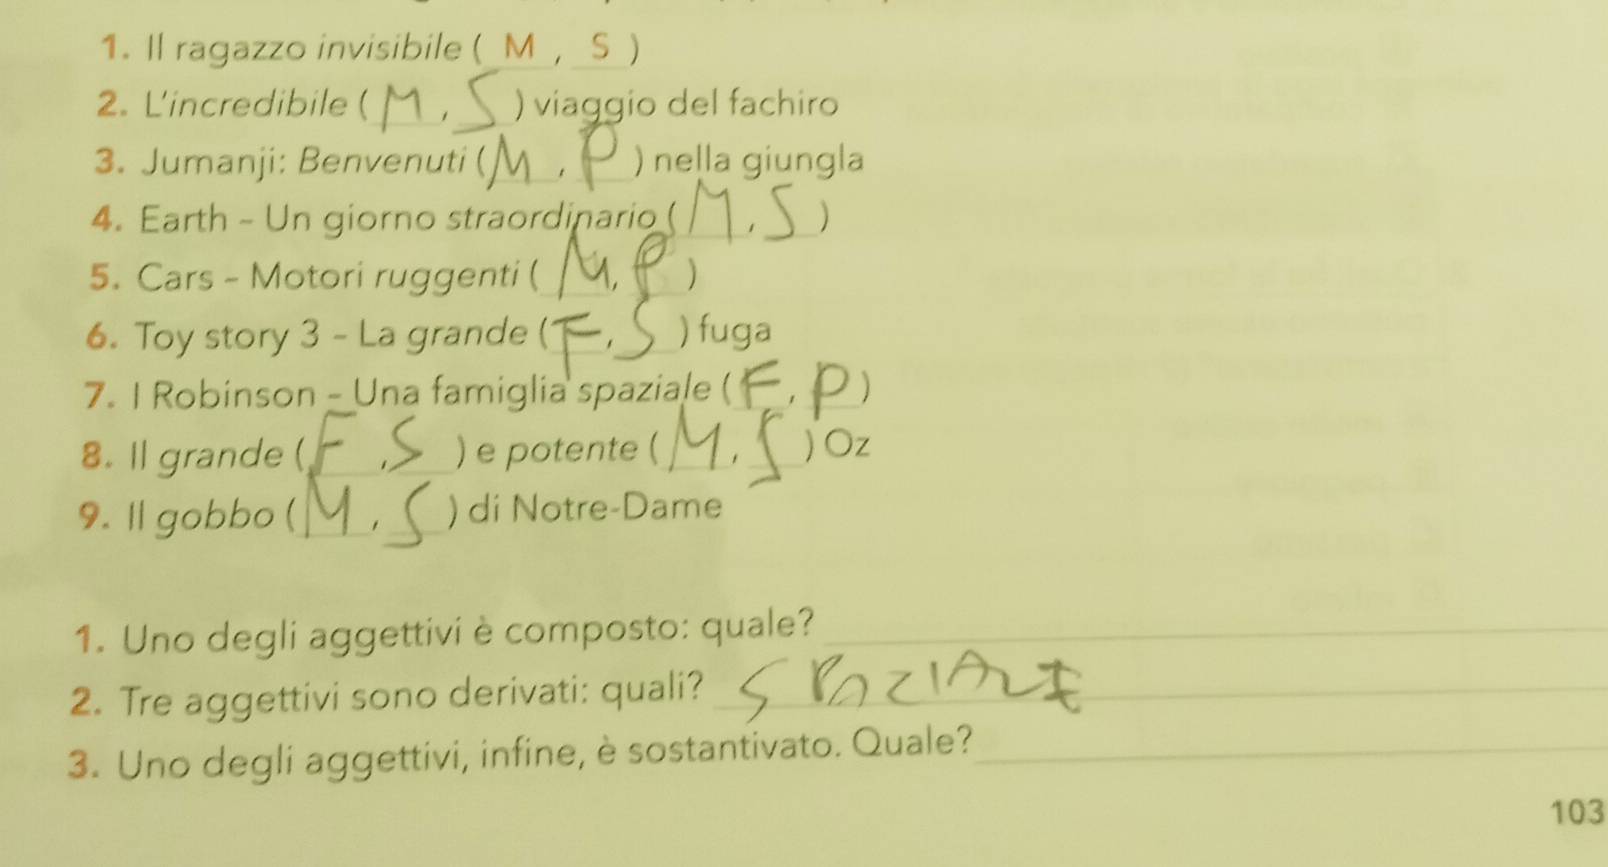 1. Il ragazzo invisibile ( M , S )
2. L'incredibile ( M , S ) viaggio del fachiro
3. Jumanji: Benvenuti ( M , P ) nella giungla
4. Earth - Un giorno straordinario ( M , S )
5. Cars - Motori ruggenti ( M , P )
6. Toy story 3 - La grande ( F , S ) fuga
7. I Robinson - Una famiglia spaziale ( F , P )
8. Il grande ( F , S ) e potente ( M , S ) Oz
9. Il gobbo ( M , S ) di Notre-Dame
1. Uno degli aggettivi è composto: quale?
2. Tre aggettivi sono derivati: quali? SPAZIALE
3. Uno degli aggettivi, infine, è sostantivato. Quale?
103